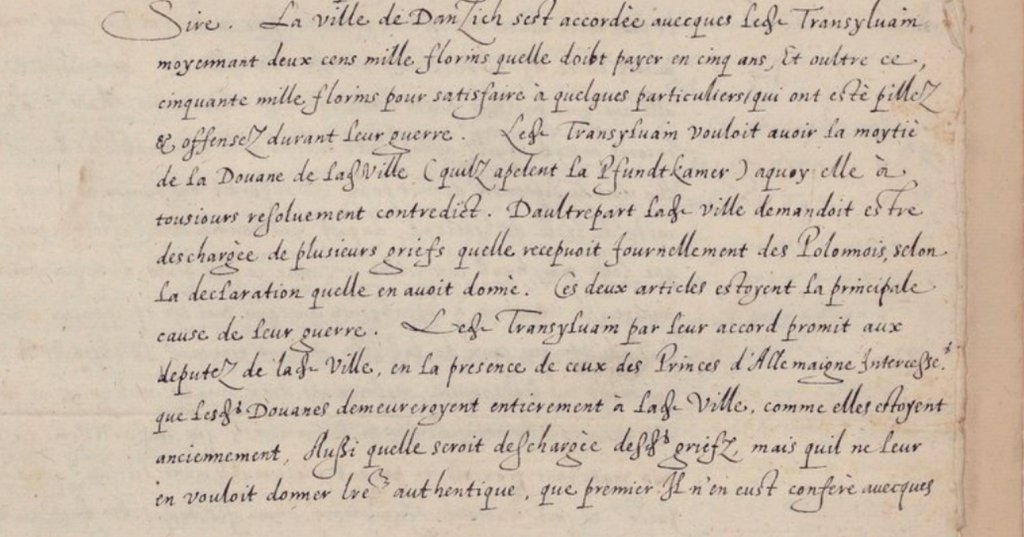 Sire. La ville de Dantzich sest accordée auecques led. Transyluain
moyennant deux cens mille florins quelle doibt payer en cinq ans, Et oultre ce,
cinquante mille florins pour satisfaire à quelques particuliers, qui ont esté pillez
& offensez durant leur guerre. Led. Transyluain vouloit auoir la moytié
de la Douane de lad. Ville (quilz apelent la Pfundtkamer) aquoy elle à
tousiours resoluement contredict. Daultrepart lad. ville demandoit estre
deschargée de plusieurs griefs quelle recepuoit journellement des Polonnois, selon
la declaration quelle en auoit donné. Ces deux articles estoyent la principale
cause de leur guerre. Led. Transyluain par leur accord promit aux
deputez de lad. Ville, en la presence de ceux des Princes d'Allemaigne Intercess.rs
que lesd.s Douanes demeureroyent entierement à lad. Ville, comme elles estoyent
anciennement, Aussi quelle seroit deschargée desd.s griefz, mais quil ne leur
en vouloit donner lre authentique, que premier Il n'en eust conferé auecques